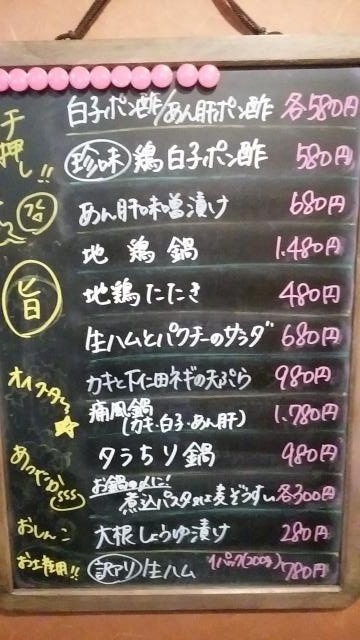 白子ポン酢/あん肝ポン酢 各580円
チ押し!!
珍味 鶏白子ポン酢 580円
あん肝味噌漬け 680円
地鶏鍋 1.480円
旨
地鶏たたき 480円
生ハムとパクチーのサラダ 680円
カキと下仁田ネギの天ぷら 980円
オイスター
痛風鍋 1.780円
(カキ・白子・あん肝)
タラちり鍋 980円
お鍋の〆に!
煮込パスタor麦ぞうすい 各300円
おしんこ
大根しょうゆ漬け 280円
お土産用!!
訳アリ 生ハム 1パック(200g) 780円